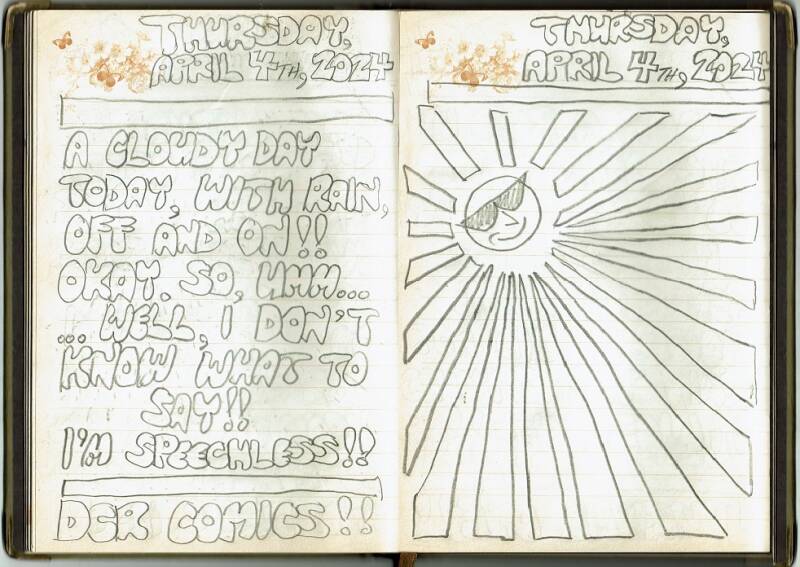 THURSDAY,
APRIL 4TH, 2024
A CLOUDY DAY
TODAY, WITH RAIN,
OFF AND ON!!
OKAY. SO, UMM...
... WELL, I DON'T
KNOW WHAT TO
SAY!!
I'M SPEECHLESS!!
DER COMICS!!
THURSDAY,
APRIL 4TH, 2024